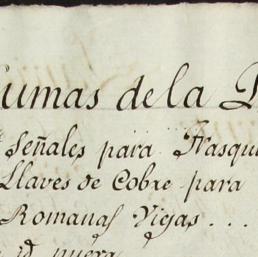 sumas de la
Señales para Frasqui
Llaves de Cobre para
Romanas Vigas . . .
id. nueva